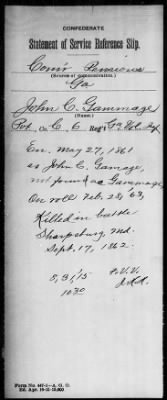 CONFEDERATE
Statement of Service Reference Slip.
Com'r Pensions
(Source of communication.)
Ga
John C. Gammage
(Name.)
Pvt. Co. C. 6 Reg't Ga. Vol. Inf
Enr. May 27, 1861
as John C. Gamage,
not found as Gammage,
On roll Feb. 28, '63,
Killed in battle
Sharpsburg, Md.
Sept. 17, 1862.
5/31/15
1030
Form No. 447-1—A. G. O.